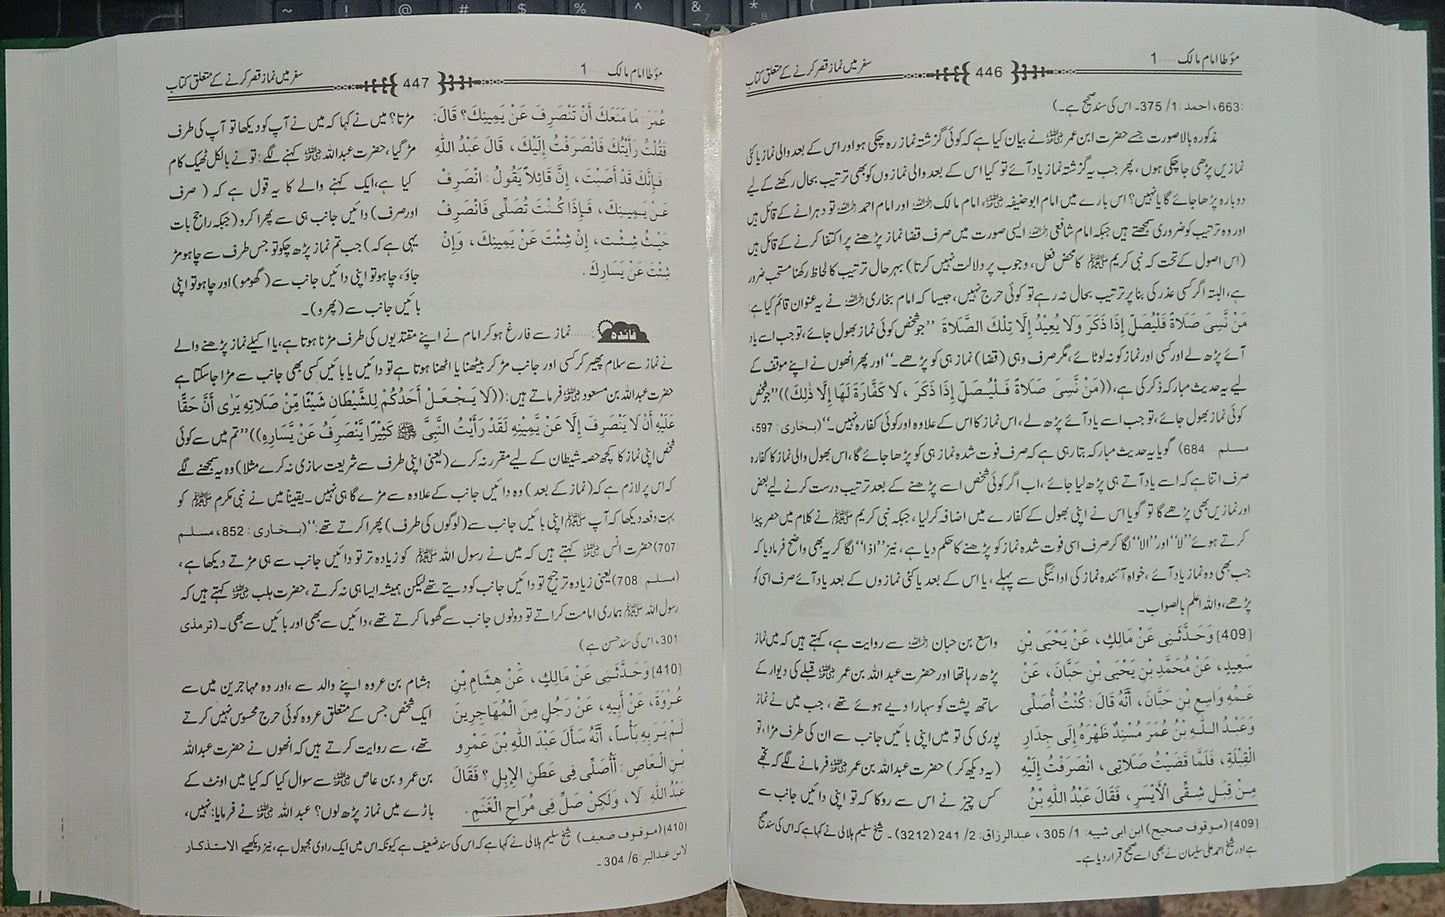 موٴطا امام مالک ..... 1
446
سفر میں نماز قصر کرنے کے متعلق کتاب
663:، احمد: 1/ 375۔ اس کی سند صحیح ہے۔)
مذکورہ بالا صورت جسے حضرت ابن عمر رضی اللہ عنہ نے بیان کیا ہے کہ کوئی گزشتہ نماز رہ چکی ہو اور اس کے بعد والی نماز یا کئی
نمازیں پڑھی جا چکی ہوں، پھر جب یہ گزشتہ نماز یاد آئے تو کیا اس کے بعد والی نمازوں کو بھی ترتیب بحال رکھنے کے لیے
دوبارہ پڑھا جائے گا یا نہیں؟ اس بارے میں امام ابوحنیفہ، امام مالک اور امام احمد تو دہرانے کے قائل ہیں
اور وہ ترتیب کو ضروری سمجھتے ہیں جبکہ امام شافعی ایسی صورت میں صرف قضا نماز پڑھنے پر اکتفا کرنے کے قائل ہیں
(اس اصول کے تحت کہ نبی کریم ﷺ کا محض فعل، وجوب پر دلالت نہیں کرتا) بہر حال ترتیب کا لحاظ رکھنا مستحب ضرور
ہے، البتہ اگر کسی عذر کی بنا پر ترتیب بحال نہ رہے تو کوئی حرج نہیں، جیسا کہ امام بخاری نے یہ عنوان قائم کیا ہے
مَنْ نَّسِیَ صَلَاةً فَلْیُصَلِّ إِذَا ذَکَرَ وَلَا یُعِیْدُ إِلَّا تِلْكَ الصَّلَاةَ ”جو شخص کوئی نماز بھول جائے، تو جب اسے یاد
آئے پڑھ لے اور کسی اور نماز کو نہ لوٹائے، مگر صرف وہی (قضا) نماز ہی کو پڑھے۔“ اور پھر انھوں نے اپنے موقف کے
لیے یہ حدیث مبارکہ ذکر کی ہے، ((مَنْ نَّسِیَ صَلَاةً فَلْیُصَلِّ إِذَا ذَکَرَ، لَا کَفَّارَةَ لَهَا إِلَّا ذٰلِكَ)) ”جو شخص
کوئی نماز بھول جائے، تو جب اسے یاد آئے پڑھ لے، اس نماز کا اس کے علاوہ اور کوئی کفارہ نہیں۔“ (بخاری: 597،
مسلم: 684) گویا یہ حدیث مبارکہ بتا رہی ہے کہ صرف فوت شدہ نماز ہی کو پڑھا جائے گا، اس بھول والی نماز کا کفارہ
صرف اتنا ہے کہ اسے یاد آتے ہی پڑھ لیا جائے، اب اگر کوئی شخص اسے پڑھنے کے بعد ترتیب درست کرنے لیے بعض
اور نمازیں بھی پڑھے گا تو گویا اس نے اپنی بھول کے کفارے میں اضافہ کر لیا، جبکہ نبی کریم ﷺ نے کلام میں حصر پیدا
کرتے ہوئے ”لا“ اور ”الا“ لگا کر صرف اسی فوت شدہ نماز کو پڑھنے کا حکم دیا ہے، نیز ”اذا“ لگا کر یہ بھی واضح فرما دیا کہ
جب بھی وہ نماز یاد آئے، خواہ آئندہ نماز کی ادائیگی سے پہلے، یا اس کے بعد یا کئی نمازوں کے بعد یاد آئے صرف اسی کو
پڑھے، واللہ اعلم بالصواب۔
[409] وَحَدَّثَنِی عَنْ مَالِكٍ، عَنْ یَحْیَی بْنِ
سَعِیدٍ، عَنْ مُحَمَّدِ بْنِ یَحْیَی بْنِ حَبَّانَ، عَنْ
عَمِّهِ وَاسِعِ بْنِ حَبَّانَ، أَنَّهُ قَالَ: کُنْتُ أُصَلِّی
وَعَبْدُ اللّٰهِ بْنُ عُمَرَ مُسْنِدٌ ظَهْرَهُ إِلَی جِدَارِ
الْقِبْلَةِ، فَلَمَّا قَضَیْتُ صَلَاتِی، انْصَرَفْتُ إِلَیْهِ
مِنْ قِبَلِ شِقِّی الْأَیْسَرِ، فَقَالَ عَبْدُ اللّٰهِ بْنُ
واسع بن حبان سے روایت ہے، کہتے ہیں کہ میں نماز
پڑھ رہا تھا اور حضرت عبداللہ بن عمر قبلے کی دیوار کے
ساتھ پشت کو سہارا دیے ہوئے تھے، جب میں نے نماز
پوری کی تو میں اپنی بائیں جانب سے ان کی طرف مڑا، تو
(یہ دیکھ کر) حضرت عبداللہ بن عمر فرمانے لگے کہ تجھے
کس چیز نے اس سے روکا کہ تو اپنی دائیں جانب سے
[409] (موقوف صحیح) ابن ابی شیبہ: 1/ 305، عبدالرزاق: 2/ 241 (3212)۔ شیخ سلیم ہلالی نے کہا ہے کہ اس کی سند صحیح
ہے اور شیخ احمد علی سلیمان نے بھی اسے صحیح قرار دیا ہے۔
موٴطا امام مالک ..... 1
447
سفر میں نماز قصر کرنے کے متعلق کتاب
عُمَرَ: مَا مَنَعَكَ أَنْ تَنْصَرِفَ عَنْ یَمِینِكَ؟ قَالَ:
فَقُلْتُ رَأَیْتُكَ فَانْصَرَفْتُ إِلَیْكَ، قَالَ عَبْدُ اللّٰهِ
فَإِنَّكَ قَدْ أَصَبْتَ، إِنَّ قَائِلاً یَقُولُ: انْصَرِفْ
عَنْ یَمِینِكَ، فَإِذَا کُنْتَ تُصَلِّی فَانْصَرِفْ
حَیْثُ شِئْتَ، إِنْ شِئْتَ عَنْ یَمِینِكَ، وَإِنْ
شِئْتَ عَنْ یَسَارِكَ.
مڑتا؟ میں نے کہا کہ میں نے آپ کو دیکھا تو آپ کی طرف
مڑ گیا، حضرت عبداللہ کہنے لگے: تو نے بالکل ٹھیک کام
کیا ہے، ایک کہنے والے کا یہ قول ہے کہ (صرف
اور صرف) دائیں جانب ہی سے پھرا کرو (جبکہ راجح بات
یہی ہے کہ) جب تم نماز پڑھ چکو تو جس طرف سے چاہو مڑ
جاؤ، چاہو تو اپنی دائیں جانب سے (گھومو) اور چاہو تو اپنی
بائیں جانب سے (پھرو)۔
فائدہ ...... نماز سے فارغ ہو کر امام نے اپنے مقتدیوں کی طرف مڑنا ہوتا ہے، یا اکیلے نماز پڑھنے والے
نے نماز سے سلام پھیر کر کسی اور جانب مڑ کر بیٹھنا یا اٹھنا ہوتا ہے تو دائیں یا بائیں کسی بھی جانب سے مڑا جا سکتا ہے
حضرت عبداللہ بن مسعود فرماتے ہیں: ((لَا یَجْعَلْ أَحَدُکُمْ لِلشَّیْطَانِ شَیْئًا مِّنْ صَلَاتِهِ یَرٰی أَنَّ حَقًّا
عَلَیْهِ أَنْ لَا یَنْصَرِفَ إِلَّا عَنْ یَّمِیْنِهِ لَقَدْ رَأَیْتُ النَّبِیَّ ﷺ کَثِیْرًا یَّنْصَرِفُ عَنْ یَّسَارِهِ)) ”تم میں سے کوئی
شخص اپنی نماز کا کچھ حصہ شیطان کے لیے مقرر نہ کرے (یعنی اپنی طرف سے شریعت سازی نہ کرے مثلاً) وہ یہ سمجھنے لگے
کہ اس پر لازم ہے کہ (نماز کے بعد) وہ دائیں جانب کے علاوہ سے مڑے گا ہی نہیں۔ یقیناً میں نے نبی مکرم ﷺ کو
بہت دفعہ دیکھا کہ آپ ﷺ اپنی بائیں جانب سے (لوگوں کی طرف) پھرا کرتے تھے۔“ (بخاری: 852، مسلم
707) حضرت انس کہتے ہیں کہ میں نے رسول اللہ ﷺ کو زیادہ تر تو دائیں جانب سے ہی مڑتے دیکھا ہے،
(مسلم: 708) یعنی زیادہ ترجیح تو دائیں جانب کو دیتے تھے لیکن ہمیشہ ایسا ہی نہ کرتے، حضرت ہلب کہتے ہیں کہ
رسول اللہ ﷺ ہماری امامت کراتے تو دونوں جانب سے گھوما کرتے تھے، دائیں سے بھی اور بائیں سے بھی۔ (ترمذی
301، اس کی سند حسن ہے)
[410] وَحَدَّثَنِی عَنْ مَالِكٍ، عَنْ هِشَامِ بْنِ
عُرْوَةَ، عَنْ أَبِیهِ، عَنْ رَجُلٍ مِنَ الْمُهَاجِرِینَ
لَمْ یَرَ بِهِ بَأْساً، أَنَّهُ سَأَلَ عَبْدَ اللّٰهِ بْنَ عَمْرِو
بْنِ الْعَاصِ: أَأُصَلِّی فِی عَطَنِ الْإِبِلِ؟ فَقَالَ
عَبْدُ اللّٰهِ: لَا، وَلٰکِنْ صَلِّ فِی مُرَاحِ الْغَنَمِ.
ہشام بن عروہ اپنے والد سے، اور وہ مہاجرین میں سے
ایک شخص جس کے متعلق عروہ کوئی حرج محسوس نہیں کرتے
تھے، سے روایت کرتے ہیں کہ انھوں نے حضرت عبداللہ
بن عمرو بن عاص سے سوال کیا کہ کیا میں اونٹ کے
باڑے میں نماز پڑھ لوں؟ عبداللہ نے فرمایا: نہیں،
[410] (موقوف ضعیف) شیخ سلیم ہلالی نے کہا ہے کہ اس کی سند ضعیف ہے کیونکہ اس میں ایک راوی مجہول ہے، نیز دیکھیے الاستذکار
لابن عبدالبر: 6/ 304۔